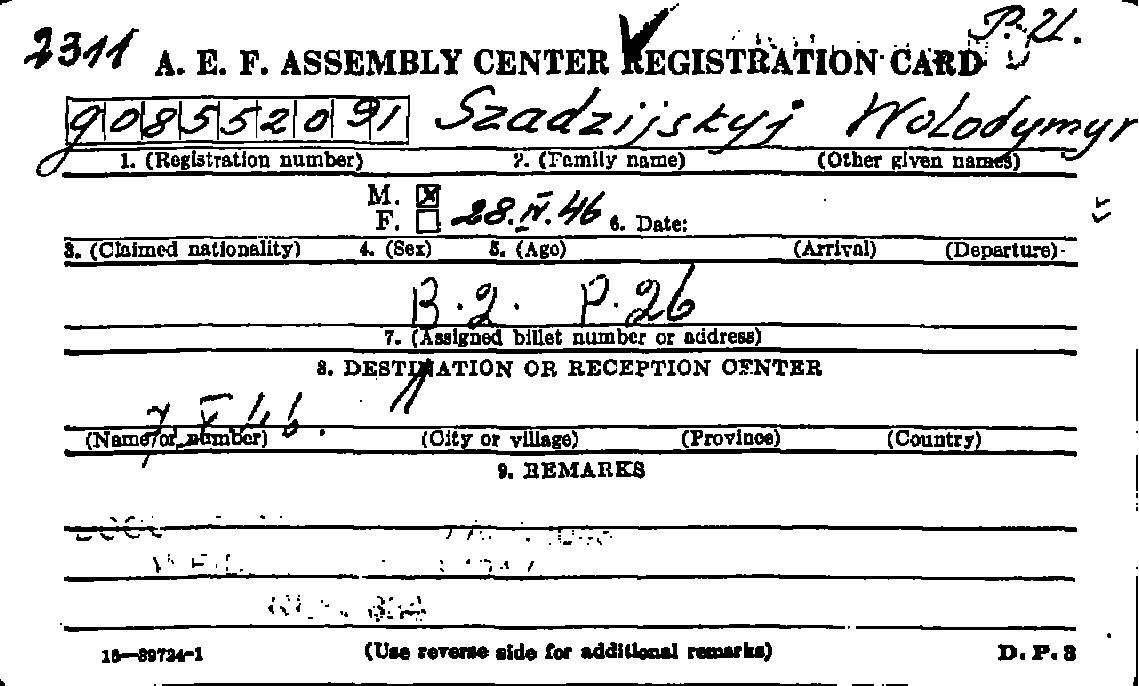 2311 P.U.
A. E. F. ASSEMBLY CENTER REGISTRATION CARD
908552091 Szadzijskyj Wolodymyr
1. (Registration number) 2. (Family name) (Other given names)
M. ☒
F. ☐ 28.IV.46 6. Date:
3. (Claimed nationality) 4. (Sex) 5. (Age) (Arrival) (Departure)
B.2. P.26
7. (Assigned billet number or address)
8. DESTINATION OR RECEPTION CENTER
7.V.46.
(Name or number) (City or village) (Province) (Country)
9. REMARKS
16—39724-1 (Use reverse side for additional remarks) D.P.3